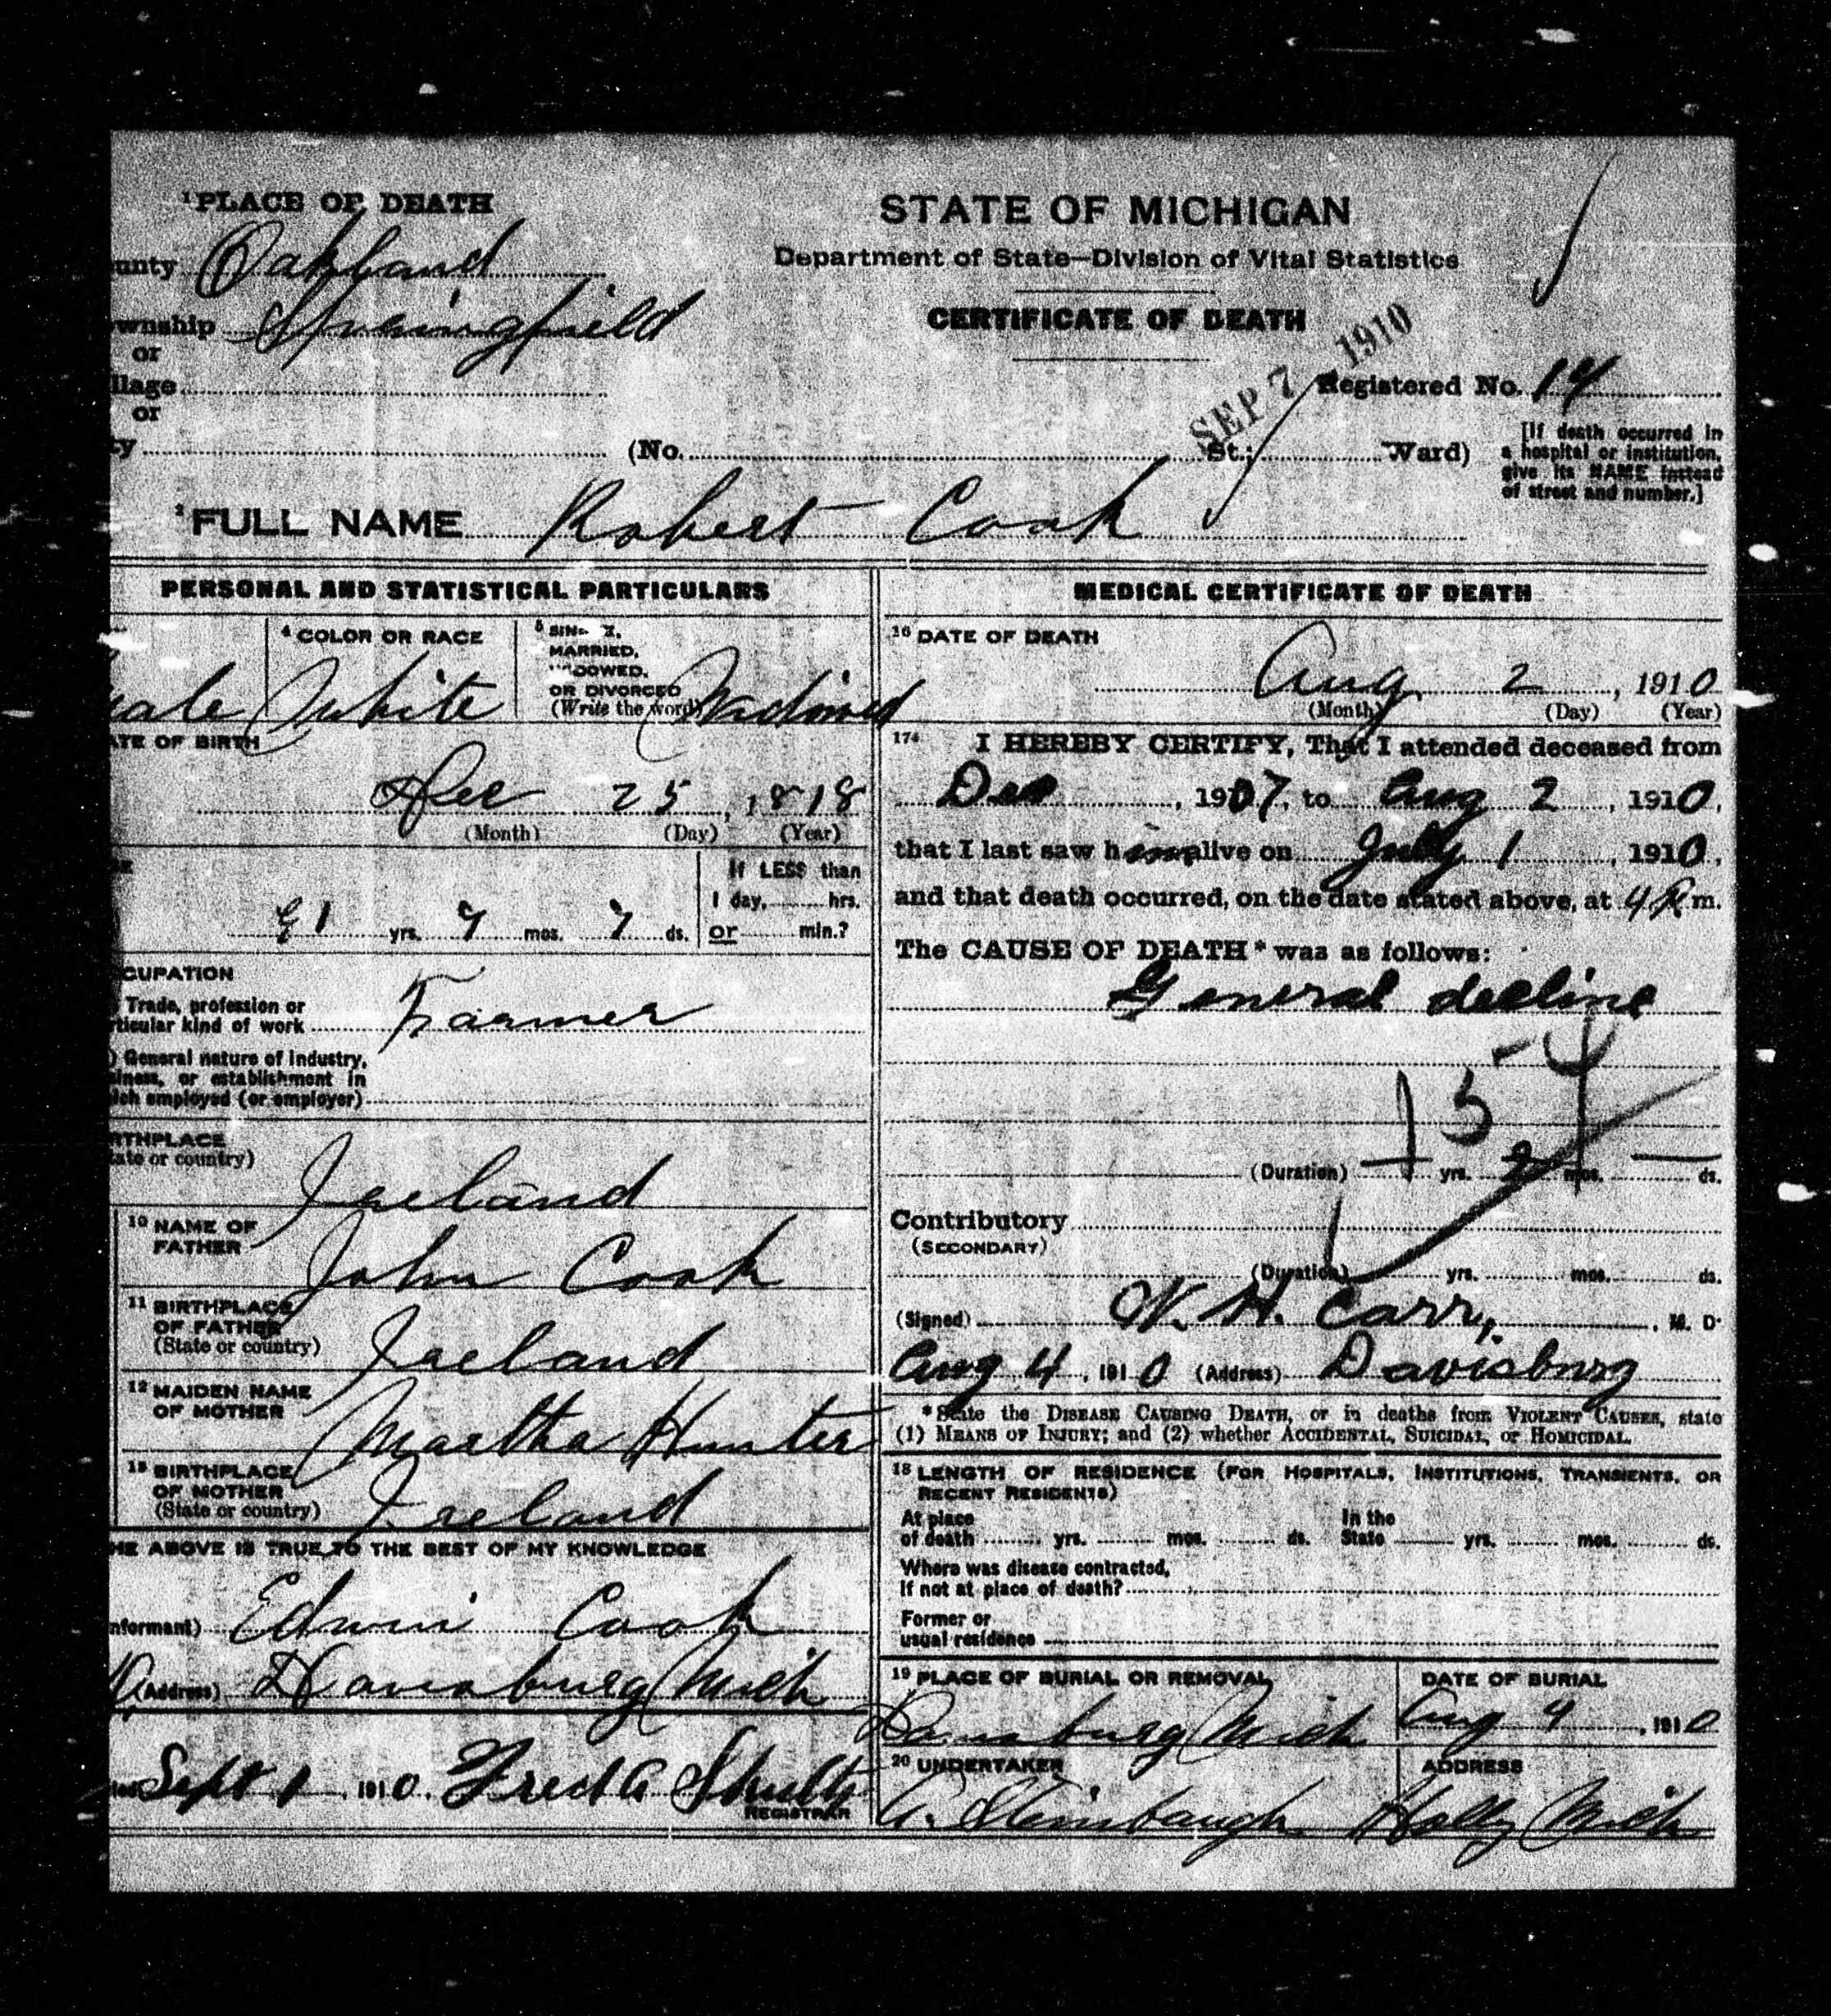 1 PLACE OF DEATH
unty Oakland
wnship Springfield
or
llage
or
ty (No. St.; Ward)
STATE OF MICHIGAN
Department of State—Division of Vital Statistics
CERTIFICATE OF DEATH
SEP 7 1910
Registered No. 14
[If death occurred in
a hospital or institution,
give its NAME instead
of street and number.]
2 FULL NAME Robert Cook
PERSONAL AND STATISTICAL PARTICULARS
4 COLOR OR RACE
5 SINGLE,
MARRIED,
WIDOWED,
OR DIVORCED
(Write the word)
male White Widowed
ATE OF BIRTH
Dec 25, 1818
(Month) (Day) (Year)
If LESS than
1 day, hrs.
91 yrs. 7 mos. 7 ds. or min.?
CUPATION
Trade, profession or
rticular kind of work Farmer
) General nature of industry,
siness, or establishment in
ich employed (or employer)
RTHPLACE
tate or country)
Ireland
10 NAME OF
FATHER
John Cook
11 BIRTHPLACE
OF FATHER
(State or country) Ireland
12 MAIDEN NAME
OF MOTHER
Martha Hunter
13 BIRTHPLACE
OF MOTHER
(State or country) Ireland
HE ABOVE IS TRUE TO THE BEST OF MY KNOWLEDGE
nformant) Edwin Cook
(Address) Davisburg Mich
led Sept 1, 1910. Fred A Shultz
REGISTRAR
MEDICAL CERTIFICATE OF DEATH
16 DATE OF DEATH
Aug. 2, 1910
(Month) (Day) (Year)
17 I HEREBY CERTIFY, That I attended deceased from
Dec, 1907, to Aug 2, 1910,
that I last saw him alive on July 1, 1910,
and that death occurred, on the date stated above, at 4 P.m.
The CAUSE OF DEATH* was as follows:
General decline
154
(Duration) yrs. 2 mos. ds.
Contributory
(SECONDARY)
(Duration) yrs. mos. ds.
(Signed) W. H. Carry, M. D.
Aug 4, 1910 (Address) Davisburg
*State the DISEASE CAUSING DEATH, or in deaths from VIOLENT CAUSES, state
(1) MEANS OF INJURY; and (2) whether ACCIDENTAL, SUICIDAL, or HOMICIDAL.
18 LENGTH OF RESIDENCE (FOR HOSPITALS, INSTITUTIONS, TRANSIENTS, OR
RECENT RESIDENTS)
At place In the
of death yrs. mos. ds. State yrs. mos. ds.
Where was disease contracted,
If not at place of death?
Former or
usual residence
19 PLACE OF BURIAL OR REMOVAL DATE OF BURIAL
Davisburg Mich Aug 4, 1910
20 UNDERTAKER ADDRESS
A. Steinbaugh Holly Mich